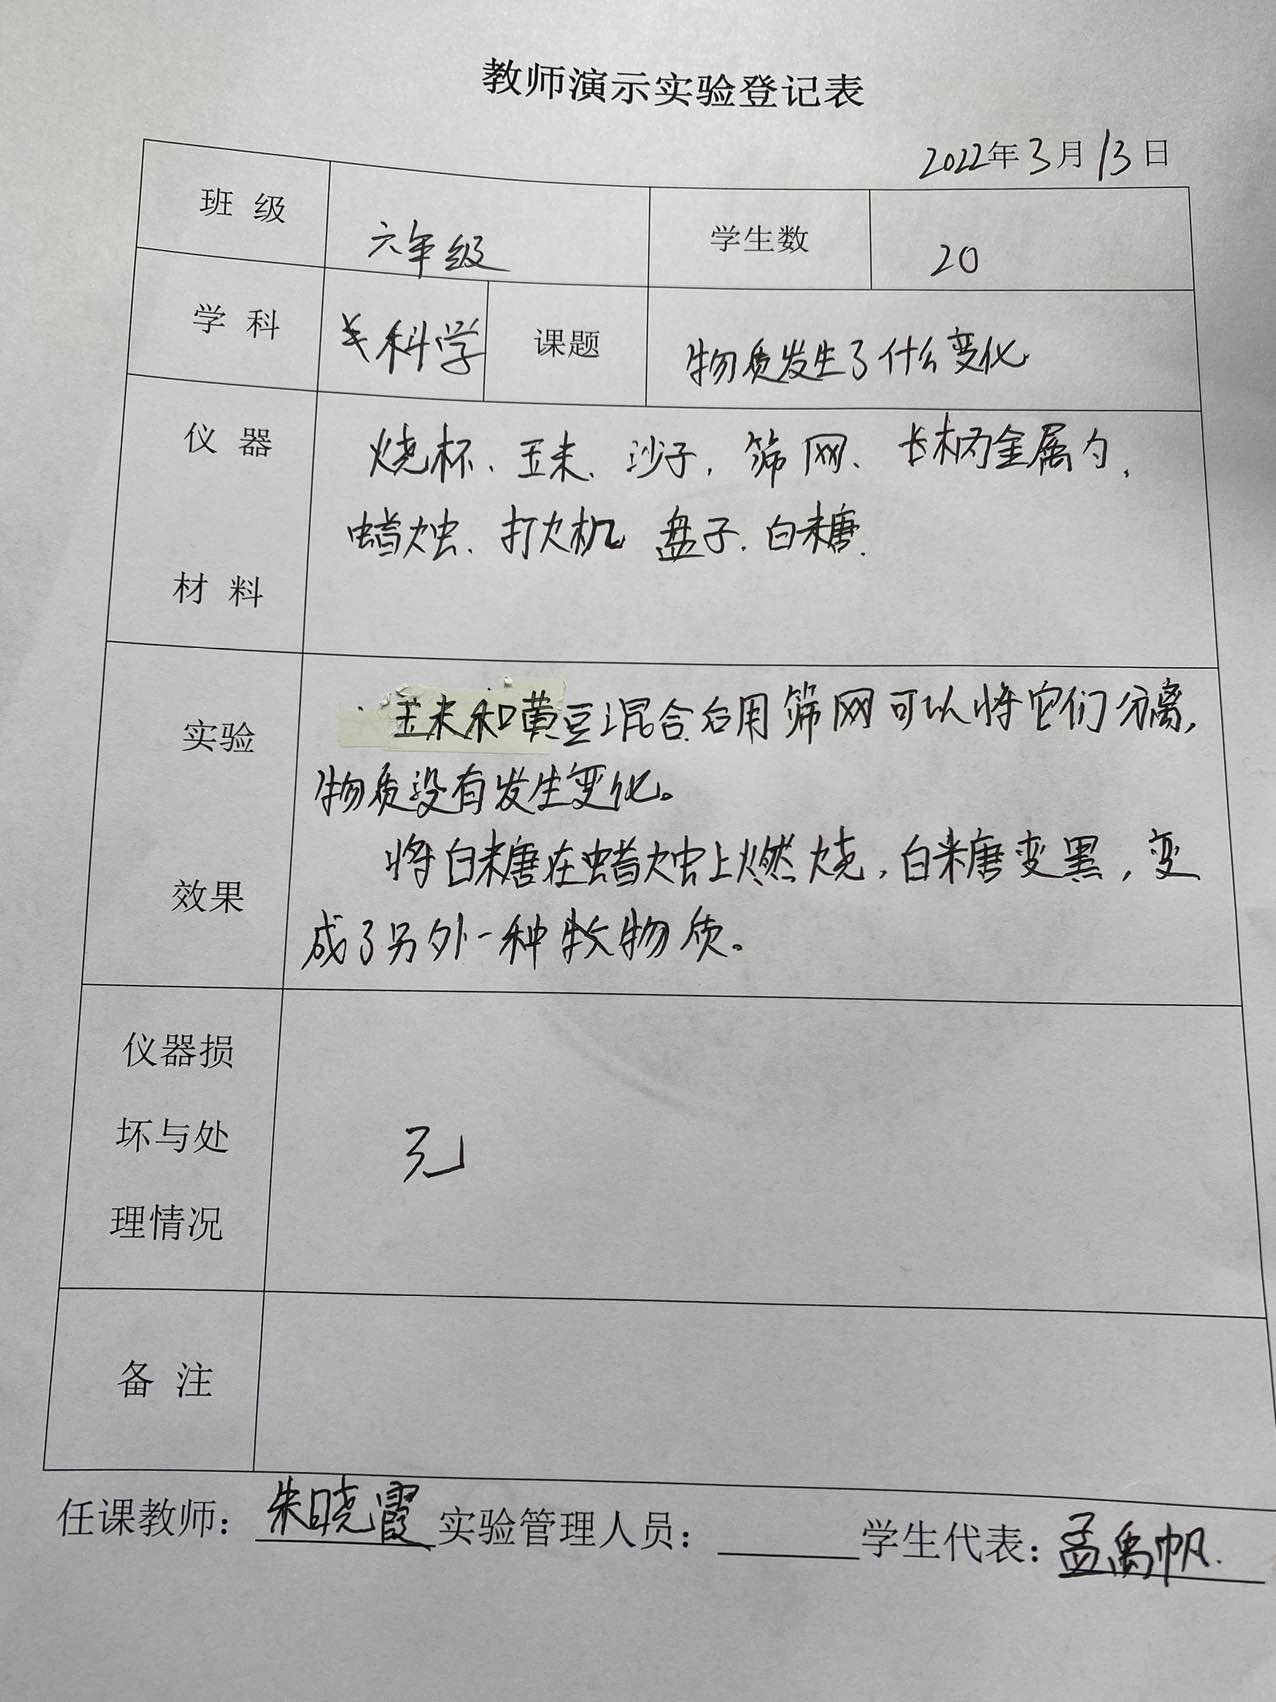 教师演示实验登记表
2022年3月13日
班级 六年级 学生数 20
学科 科学 课题 物质发生了什么变化
仪器 烧杯、玉米、沙子,筛网、长柄金属勺,
蜡烛、打火机 盘子.白糖.
材料
玉米和黄豆混合后用筛网可以将它们分离,
实验
物质没有发生变化。
将白糖在蜡烛上燃烧,白糖变黑,变
效果
成了另外一种物质。
仪器损
坏与处 无
理情况
备注
任课教师:朱晓霞 实验管理人员: 学生代表:孟禹帆.